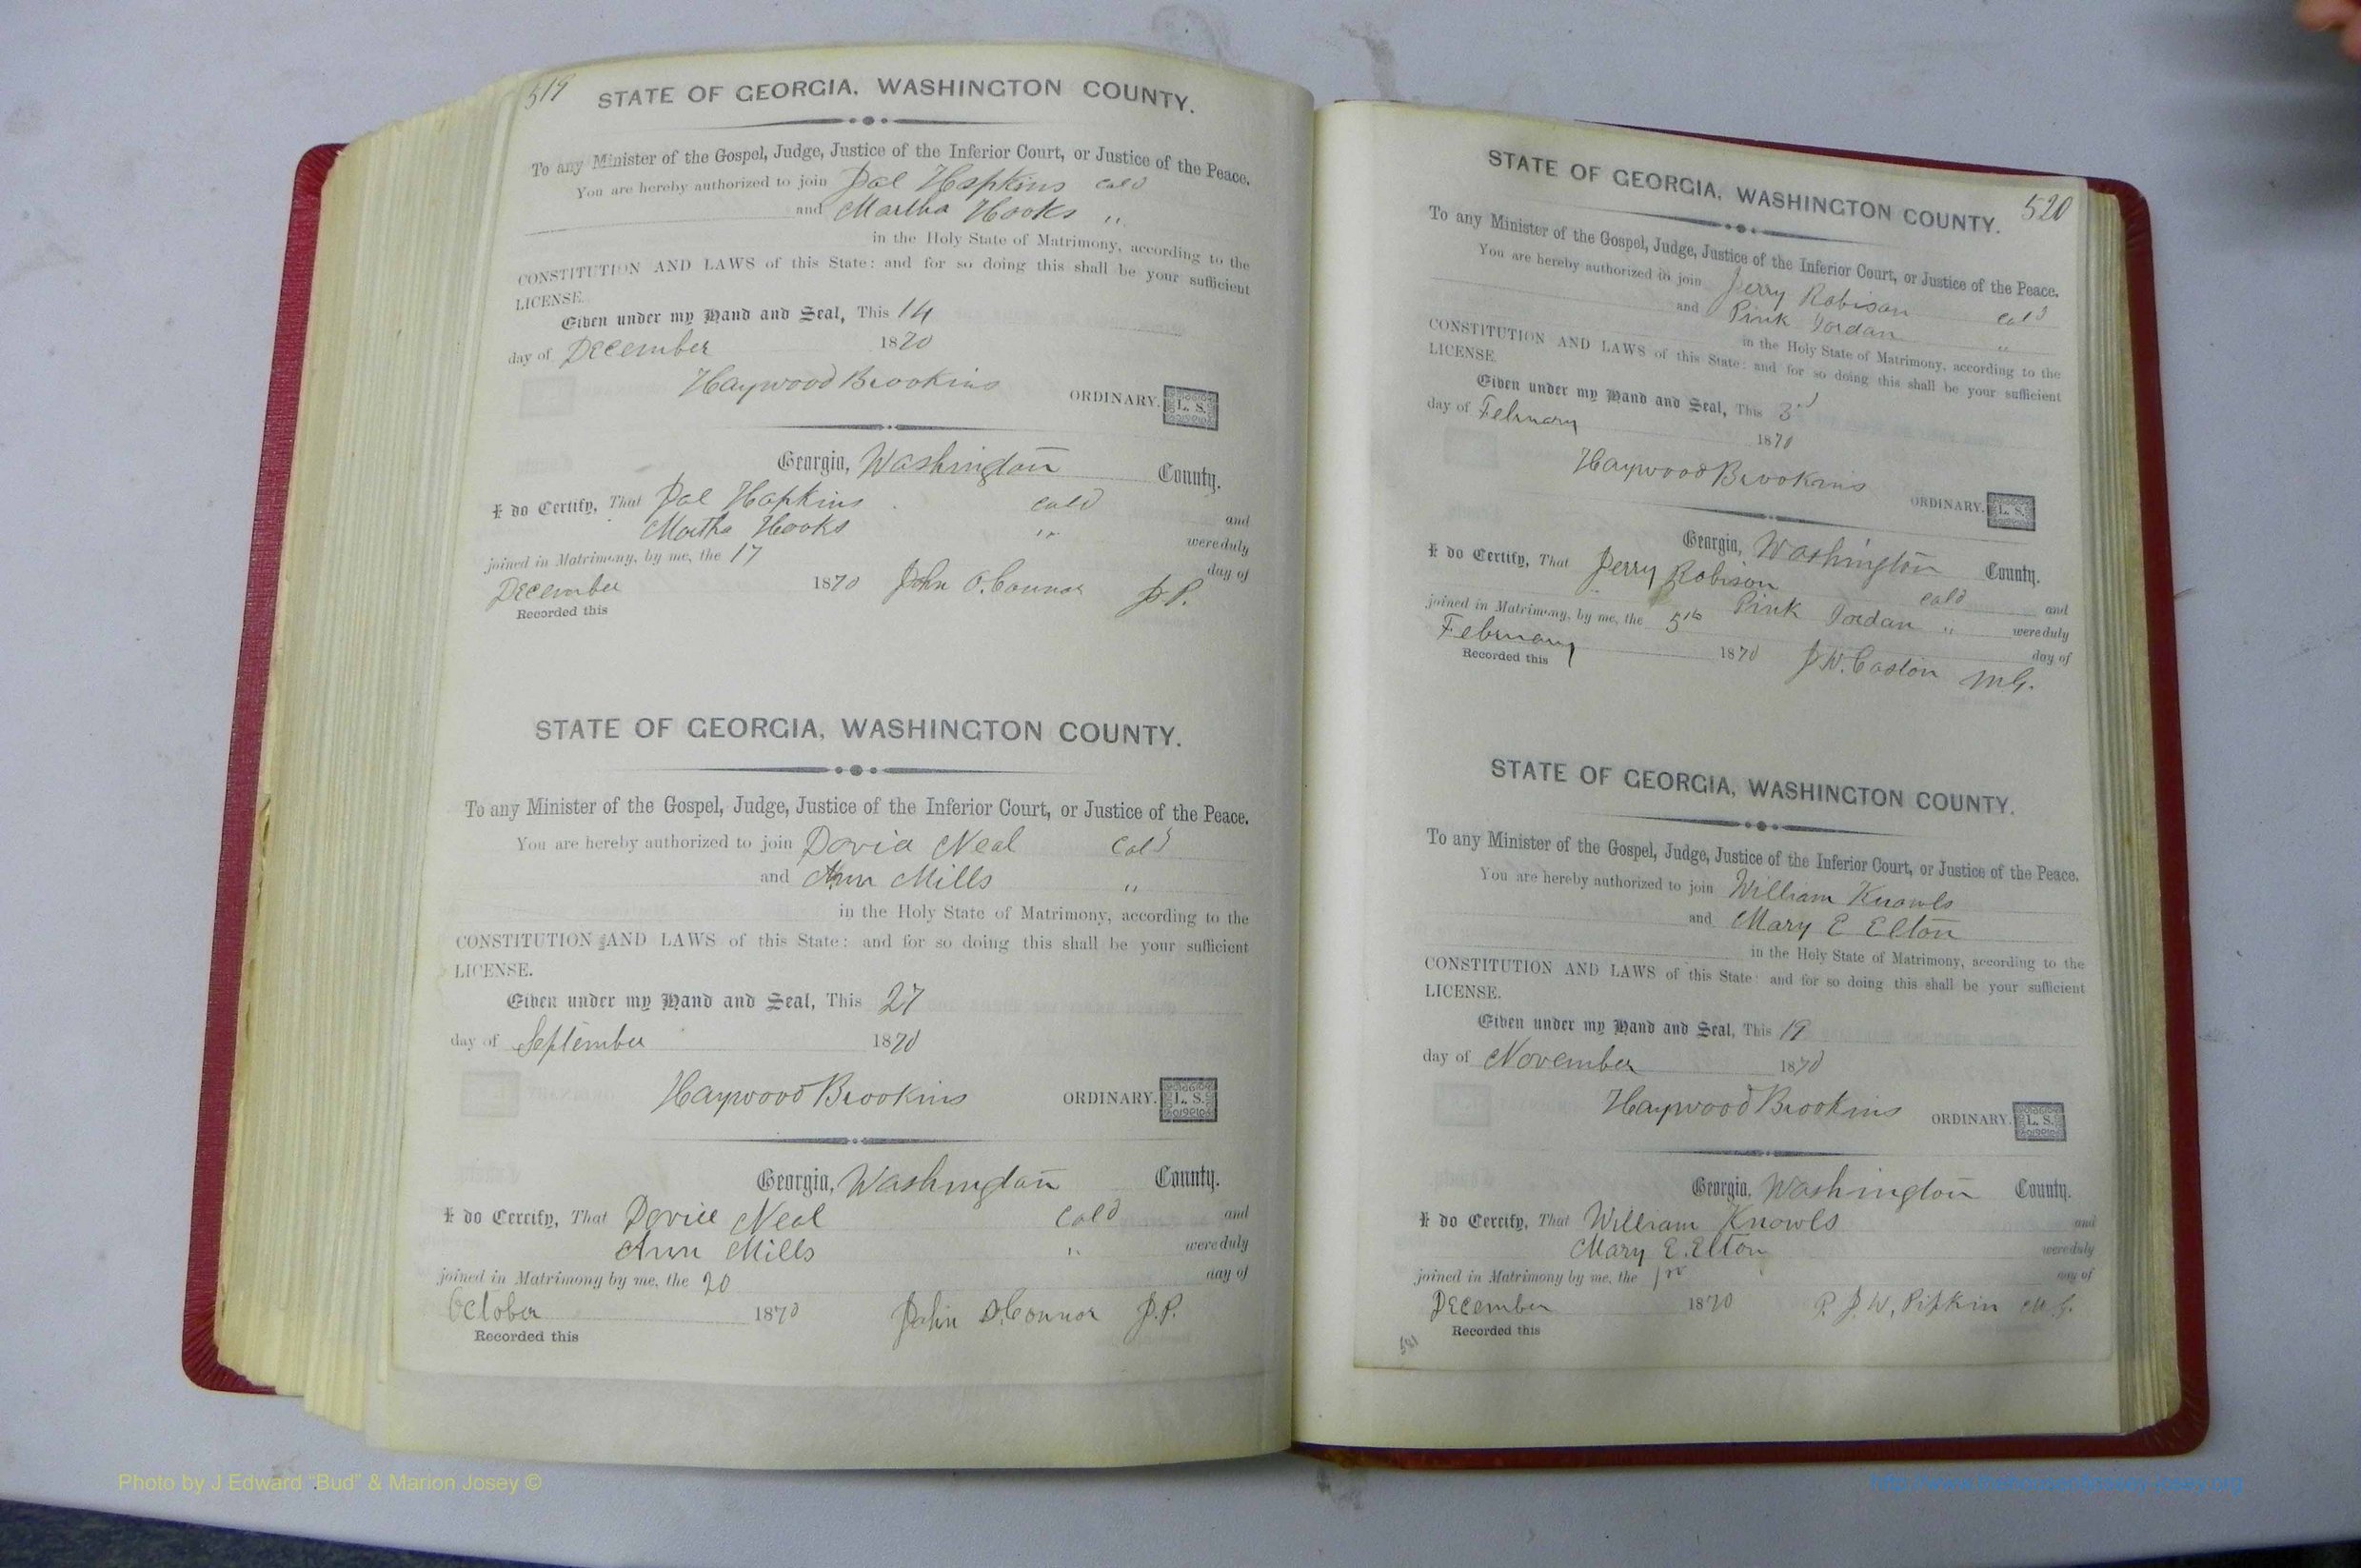 519
STATE OF GEORGIA, WASHINGTON COUNTY.
To any Minister of the Gospel, Judge, Justice of the Inferior Court, or Justice of the Peace.
You are hereby authorized to join Hopkins cold
and Martha Hooks "
in the Holy State of Matrimony, according to the
CONSTITUTION AND LAWS of this State: and for so doing this shall be your sufficient
LICENSE.
Given under my Hand and Seal, This 14
day of December 1870
Haywood Brookins ORDINARY. L. S.
Georgia, Washington County.
I do Certify, That Hopkins cold and
Martha Hooks " were duly
joined in Matrimony, by me, the 17 day of
December 1870 John O.Connor J P.
Recorded this
STATE OF GEORGIA, WASHINGTON COUNTY.
To any Minister of the Gospel, Judge, Justice of the Inferior Court, or Justice of the Peace.
You are hereby authorized to join David Neal Cold
and Ann Mills "
in the Holy State of Matrimony, according to the
CONSTITUTION AND LAWS of this State: and for so doing this shall be your sufficient
LICENSE.
Given under my Hand and Seal, This 27
day of September 1870
Haywood Brookins ORDINARY. L. S.
Georgia, Washington County.
I do Certify, That Neal Cold and
Ann Mills " were duly
joined in Matrimony by me, the 20 day of
October 1870 John O.Connor J.P.
Recorded this
520
STATE OF GEORGIA, WASHINGTON COUNTY.
To any Minister of the Gospel, Judge, Justice of the Inferior Court, or Justice of the Peace.
You are hereby authorized to join Jerry Robison cold
and Pink Jordan "
in the Holy State of Matrimony, according to the
CONSTITUTION AND LAWS of this State: and for so doing this shall be your sufficient
LICENSE.
Given under my Hand and Seal, This 3d
day of February 1870
Haywood Brookins ORDINARY. L. S.
Georgia, Washington County.
I do Certify, That Jerry Robison cold and
Pink Jordan " were duly
joined in Matrimony, by me, the 5th day of
February 1870 J.W. Caston MG.
Recorded this
STATE OF GEORGIA, WASHINGTON COUNTY.
To any Minister of the Gospel, Judge, Justice of the Inferior Court, or Justice of the Peace.
You are hereby authorized to join William Knowls
and Mary E Elton
in the Holy State of Matrimony, according to the
CONSTITUTION AND LAWS of this State: and for so doing this shall be your sufficient
LICENSE.
Given under my Hand and Seal, This 19
day of November 1870
Haywood Brookins ORDINARY. L. S.
Georgia, Washington County.
I do Certify, That William Knowls and
Mary E. Elton were duly
joined in Matrimony by me, the day of
December 1870 P. J.W. Pipkin M G.
Recorded this
Photo by J Edward “Bud” & Marion Josey ©